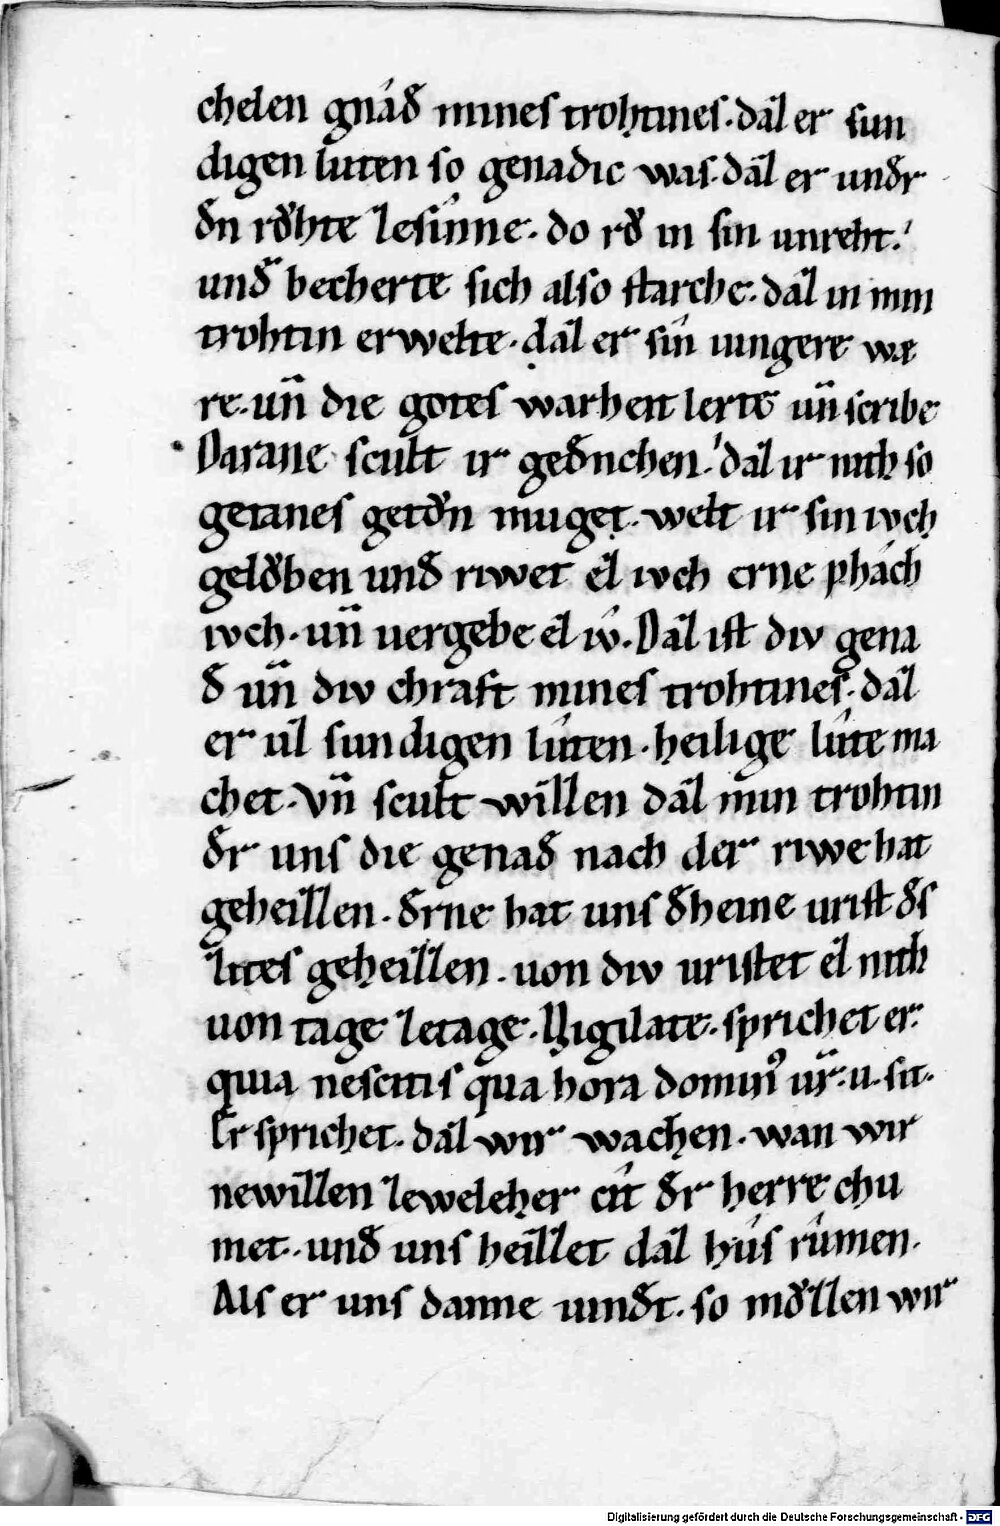 chelen gnad̄ mines trohtines. daz er sun
digen luten so genadic was. daz er und̄r
d̄n rŏhte zesinne. do rŏ in sin unreht.
und̄ becherte sich also starche. daz in min
trohtin erwelte. daz er sin iungere wæ
re. un̄ die gotes warheit lerte un̄ scribe
Darane scult ir ged̄nchen. daz ir nith so
getanes getŏn muget. welt ir sin iwch
gelŏben und̄ riwet ez iwch erne phach
iwch. un̄ uergebe ez iw. Daz ist diw gena
d̄ un̄ diw chraft mines trohtines. daz
er uz sundigen lûten. heilige lûte ma
chet. Vn̄ scult wizzen daz min trohtin
d̄r uns die genad̄ nach der riwe hat
geheizzen. d̄rne hat uns d̄heine urist d̄s
zites geheizzen. uon diw uristet ez nith
uon tage zetage. Vigilate. sprichet er.
quia nescitis qua hora domin⁹ ur̄. u. sit.
Er sprichet. daz wir wachen. wan wir
newizzen zeweleher cit d̄r herre chu
met. und̄ uns heizzet daz hus rûmen.
Als er uns danne uind̄t. so mŏzzen wir
Digitalisierung gefördert durch die Deutsche Forschungsgemeinschaft - DFG